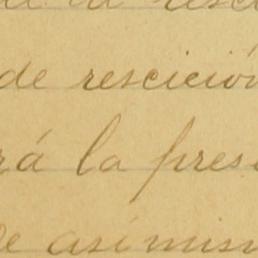 de rescición
rá la pres
de asimism